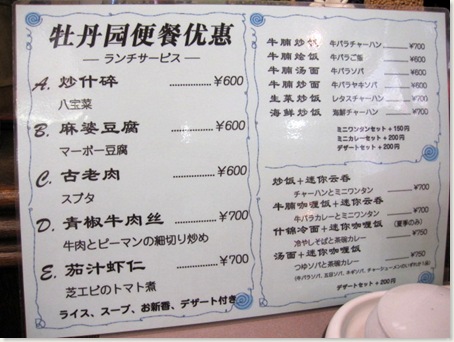 牡丹园便餐优惠
― ランチサービス ―
A. 炒什碎 ……………¥600
八宝菜
B. 麻婆豆腐 ……………¥600
マーボー豆腐
C. 古老肉 ……………¥600
スブタ
D. 青椒牛肉丝 ……………¥700
牛肉とピーマンの細切り炒め
E. 茄汁虾仁 ……………¥700
芝エビのトマト煮
ライス、スープ、お新香、デザート付き
牛腩炒饭 牛バラチャーハン ……………¥700
牛腩烩饭 牛バラご飯 ……………¥700
牛腩汤面 牛バラソバ ……………¥700
牛腩炒面 牛バラヤキソバ ……………¥700
生菜炒饭 レタスチャーハン ……………¥700
海鲜炒饭 海鮮チャーハン ……………¥700
ミニワンタンセット + 150円
ミニカレーセット + 200円
デザートセット + 200円
炒饭+迷你云吞
チャーハンとミニワンタン ……………¥700
牛腩咖喱饭+云吞
牛バラカレーとミニワンタン ……………¥700
什锦冷面+迷你咖喱饭 (夏季のみ)
冷やしそばと茶碗カレー ……………¥750
汤面+迷你咖喱饭
つゆソバと茶碗カレー ……………¥750
デザートセット + 200円